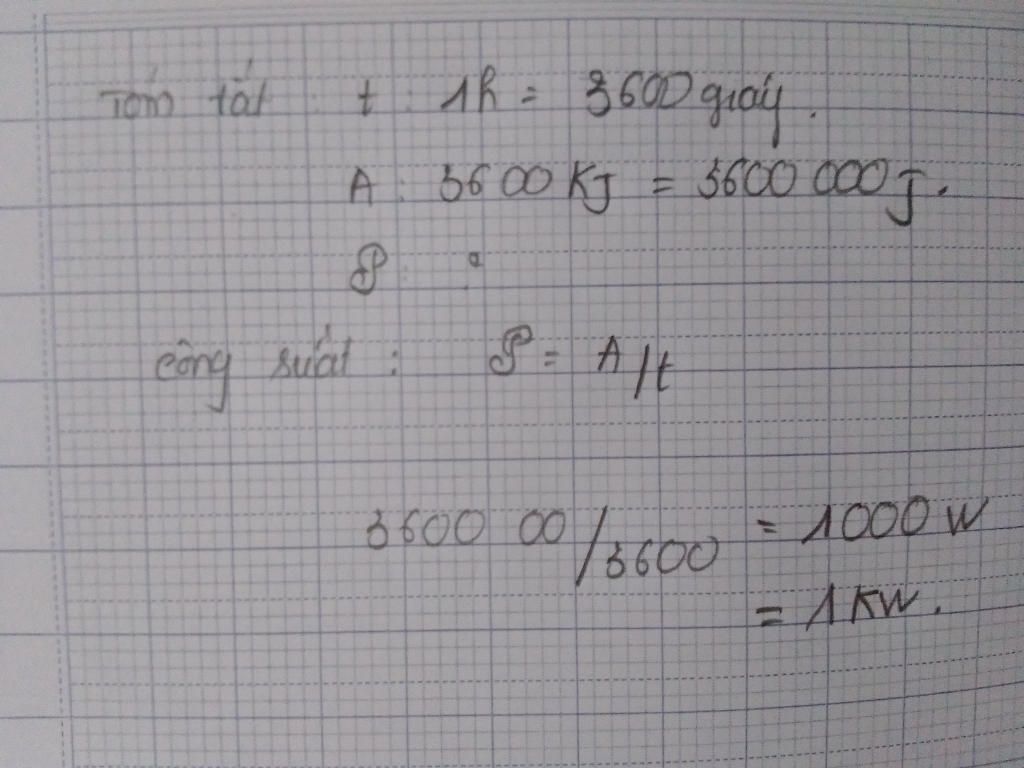 Tóm tắt : t : 1h = 3600 giây.
A : 3600 KJ = 3600 000 J.
P : ?
công suất : P = A/t
3600 00 / 3600 = 1000 W
= 1 KW.